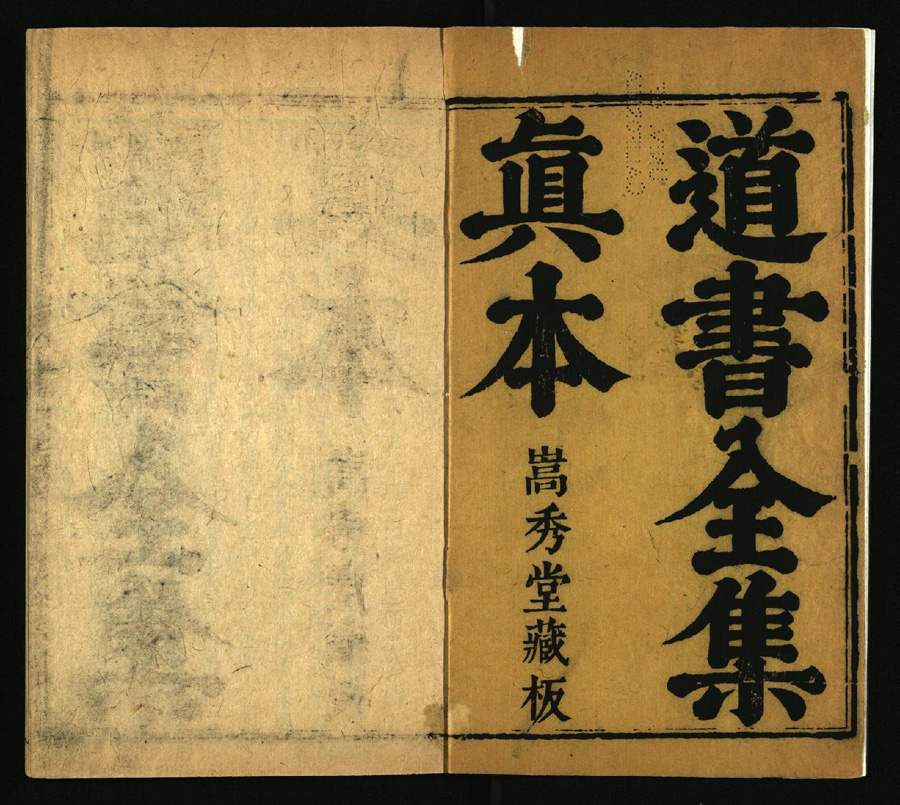 道書全集
眞本
嵩秀堂藏板